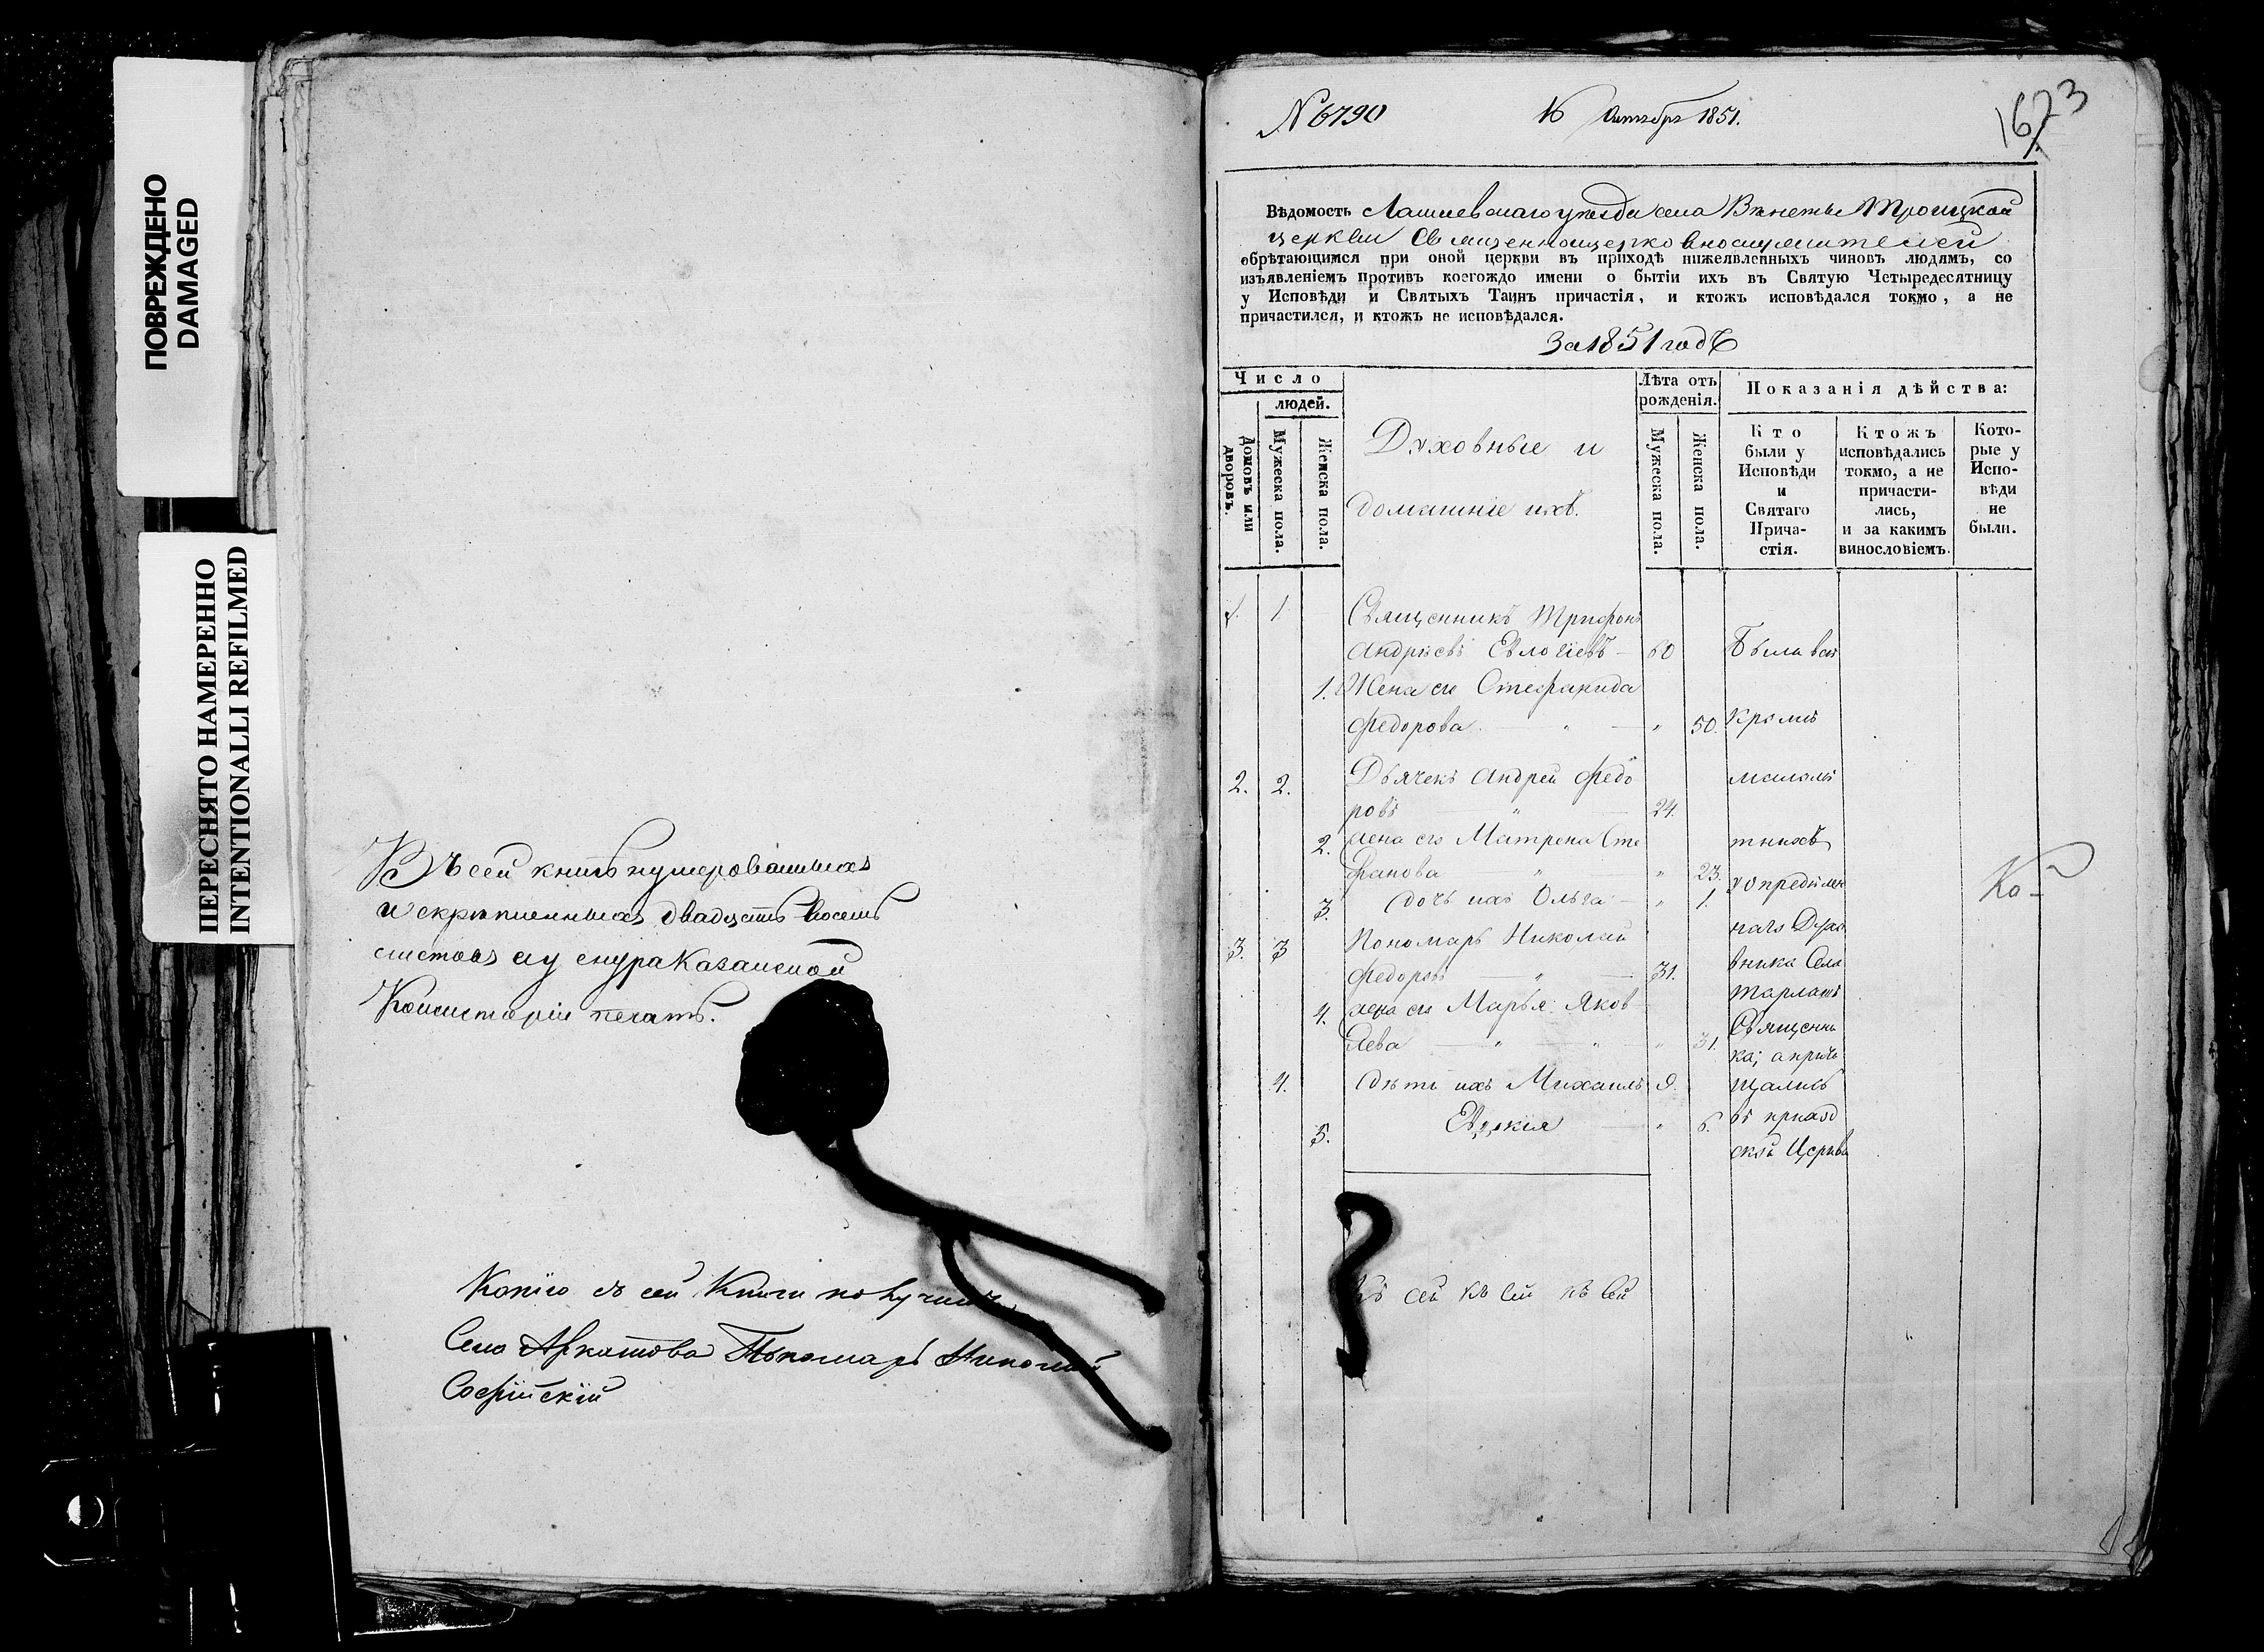 ПОВРЕЖДЕНО
DAMAGED
ПЕРЕСНЯТО НАМЕРЕННО
INTENTIONALLI REFILMED
Въ сей книгѣ нумерованныхъ
и скрѣпленныхъ двадцать восемь
листовъ а у снура Казанской
Консисторіи печать.
Копію съ сей Книги получилъ
Села Аркатова Пономарь Николай
Софійскій
№ 6790
16 Октябр 1851.
1673
Вѣдомость Лаишевскаго уѣзда села Вѣнеты Троицкой
церкви Священноцерковнослужителей
обрѣтающимся при оной церкви въ приходѣ нижеявленныхъ чиновъ людямъ, со
изъявленіемъ противъ коегождо имени о бытіи ихъ въ Святую Четыредесятницу
у Исповѣди и Святыхъ Таинъ причастія, и ктожъ исповѣдался токмо, а не
причастился, и ктожъ не исповѣдался.
За 1851 годъ
Число
людей.
Домовъ или дворовъ.
Мужеска пола.
Женска пола.
Духовные и
домашніе ихъ.
Лѣта отъ рожденія.
Мужеска пола.
Женска пола.
Показанія дѣйства:
Кто были у Исповѣди и Святаго Прича-стія.
Ктожъ исповѣдались токмо, а не причасти-лись, и за какимъ винословіемъ.
Кото-рые у Испо-вѣди не были.
1. 1 Священникъ Трифонъ
Андреевъ Евлогіевъ 60 Были всѣ
1. Жена его Стефанида
Федорова. " " 50. Кромѣ
2. 2. Дьячекъ Андрей Федо малолѣ
ровъ " 24.
2. жена его Матрена Сте тныхъ
фанова " " 23.
3. дочь ихъ Ольга " 1. у опредѣлен
3. 3 Пономарь Николай наго Духо
Федоровъ " 31. вника Села
4. жена его Марья Яков Тарлаши
лева " " " 31. Священни
ка; а прича
4. дѣти ихъ Михаилъ 9. щались
5. Евдокія " 6. въ приход
ской Церкви
Ко-й
Къ сей къ сей къ сей